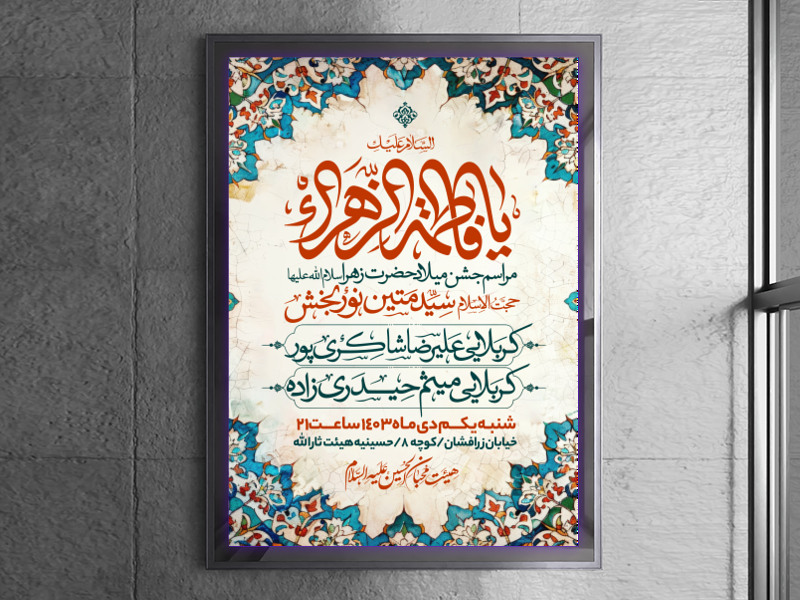 السلام علیک
یا فاطمة الزهراء
مراسم جشن میلاد حضرت زهرا سلام الله علیها
حجت الاسلام سید متین نوربخش
کربلایی علیرضا شاکری پور
کربلایی میثم حیدری زاده
شنبه یکم دی ماه ۱۴۰۳ ساعت ۲۱
خیابان زرافشان / کوچه ۸ / حسینیه هیئت ثارالله
هیئت محبان الحسین علیه السلام